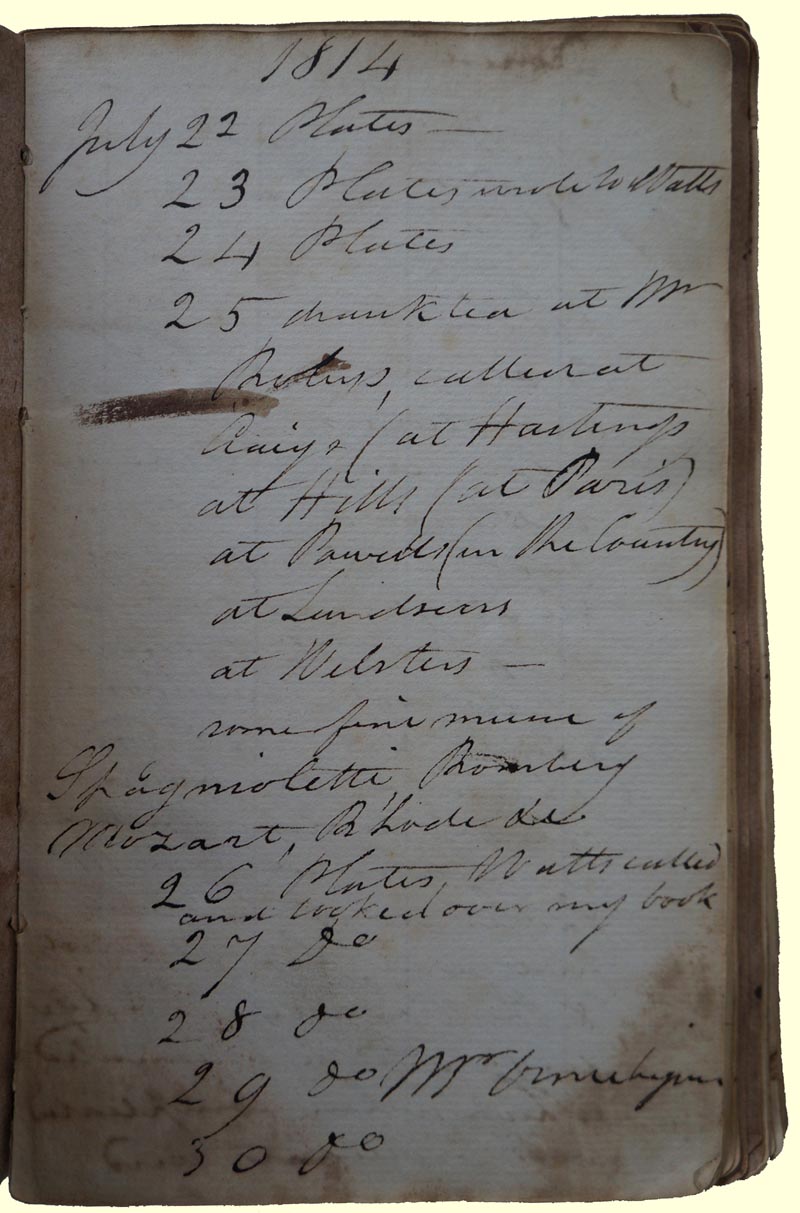 1814
July 22 Plates —
23 Plates wrote to Watts
24 Plates
25 drank tea at Mr
called at
Craigs (at Hastings
at Hills (at Paris)
at Powells (in the Country)
at Landseers
at Websters —
some fine music of
Spagnioletti, Romberg
Mozart, Rhode &c
26 Plates, Watts called
and looked over my book
27 Do
28 do
29 do Mr
30 do